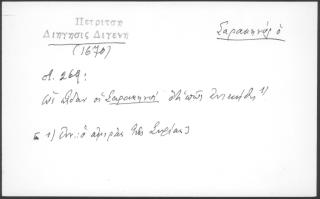 Πετρίτση
Διήγησις Διγενῆ
(1670)
Σαρακηνός ὁ
στ. 269:
Ὡς εἶδαν οἱ Σαρακηνοί ὅτι πῶς ἐνικήθη 1)
1) ὁ ἀμιρᾶς τῆς Συρίας